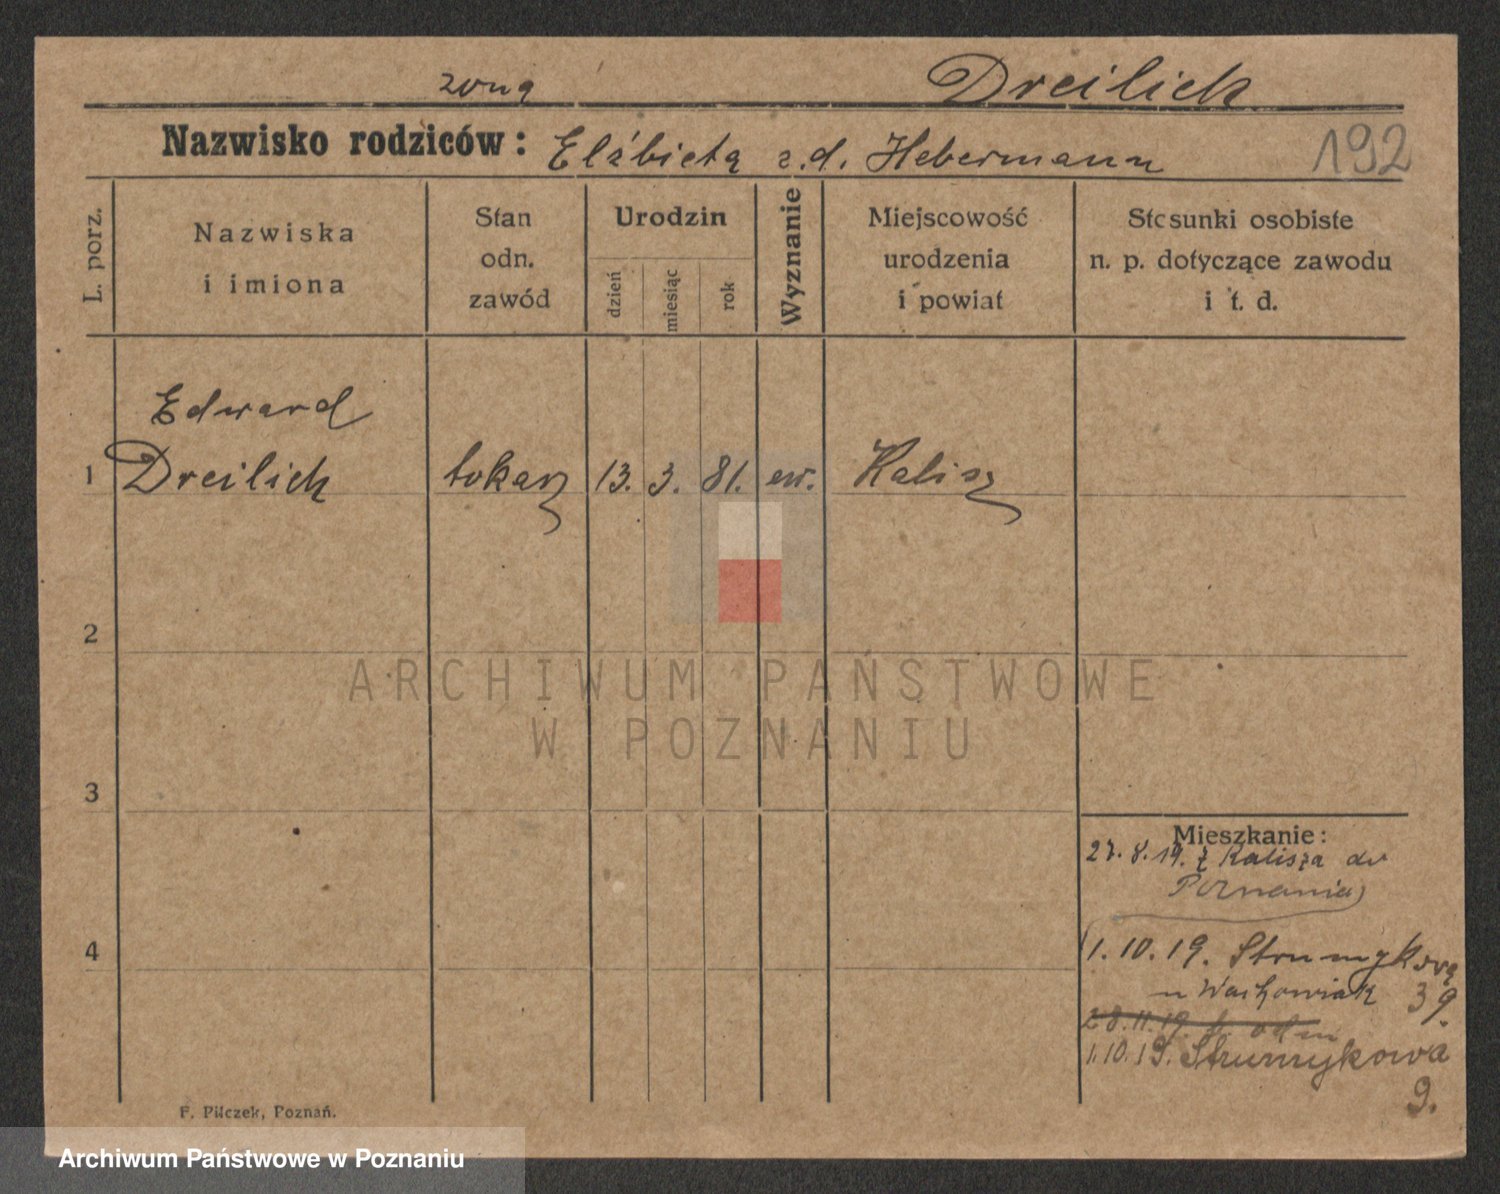 Dreilich
żoną
Nazwisko rodziców: Elżbietą z.d. Hebermann
192
L. porz.
Nazwiska
i imiona
Stan
odn.
zawód
Urodzin
dzień
miesiąc
rok
Wyznanie
Miejscowość
urodzenia
i powiat
Stosunki osobiste
n. p. dotyczące zawodu
i t. d.
Edward
1 Dreilich tokarz 13. 3. 81. ew. Kalisz
2
ARCHIWUM PAŃSTWOWE
W POZNANIU
3
Mieszkanie:
27. 8. 19. z Kalisza do
Poznania
4
1. 10. 19. Strumykową
u Wachowiak 39.
28. 11. 19.
1. 10. 19. Strumykowa
9.
F. Pilczek, Poznań.
Archiwum Państwowe w Poznaniu